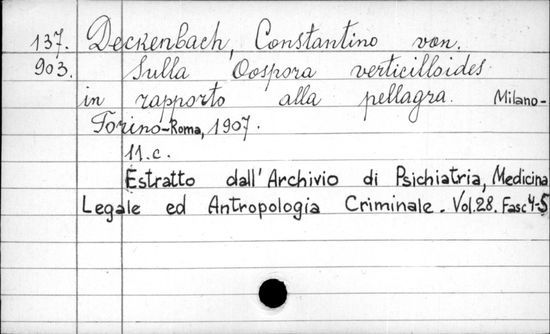 137. Deckenbach, Constantino von.
903. Sulla Oospora verticilloides
in rapporto alla pellagra. Milano-
Torino-Roma, 1907.
11.c.
Estratto dall'Archivio di Psichiatria, Medicina
Legale ed Antropologia Criminale. Vol.28. Fasc 4-5